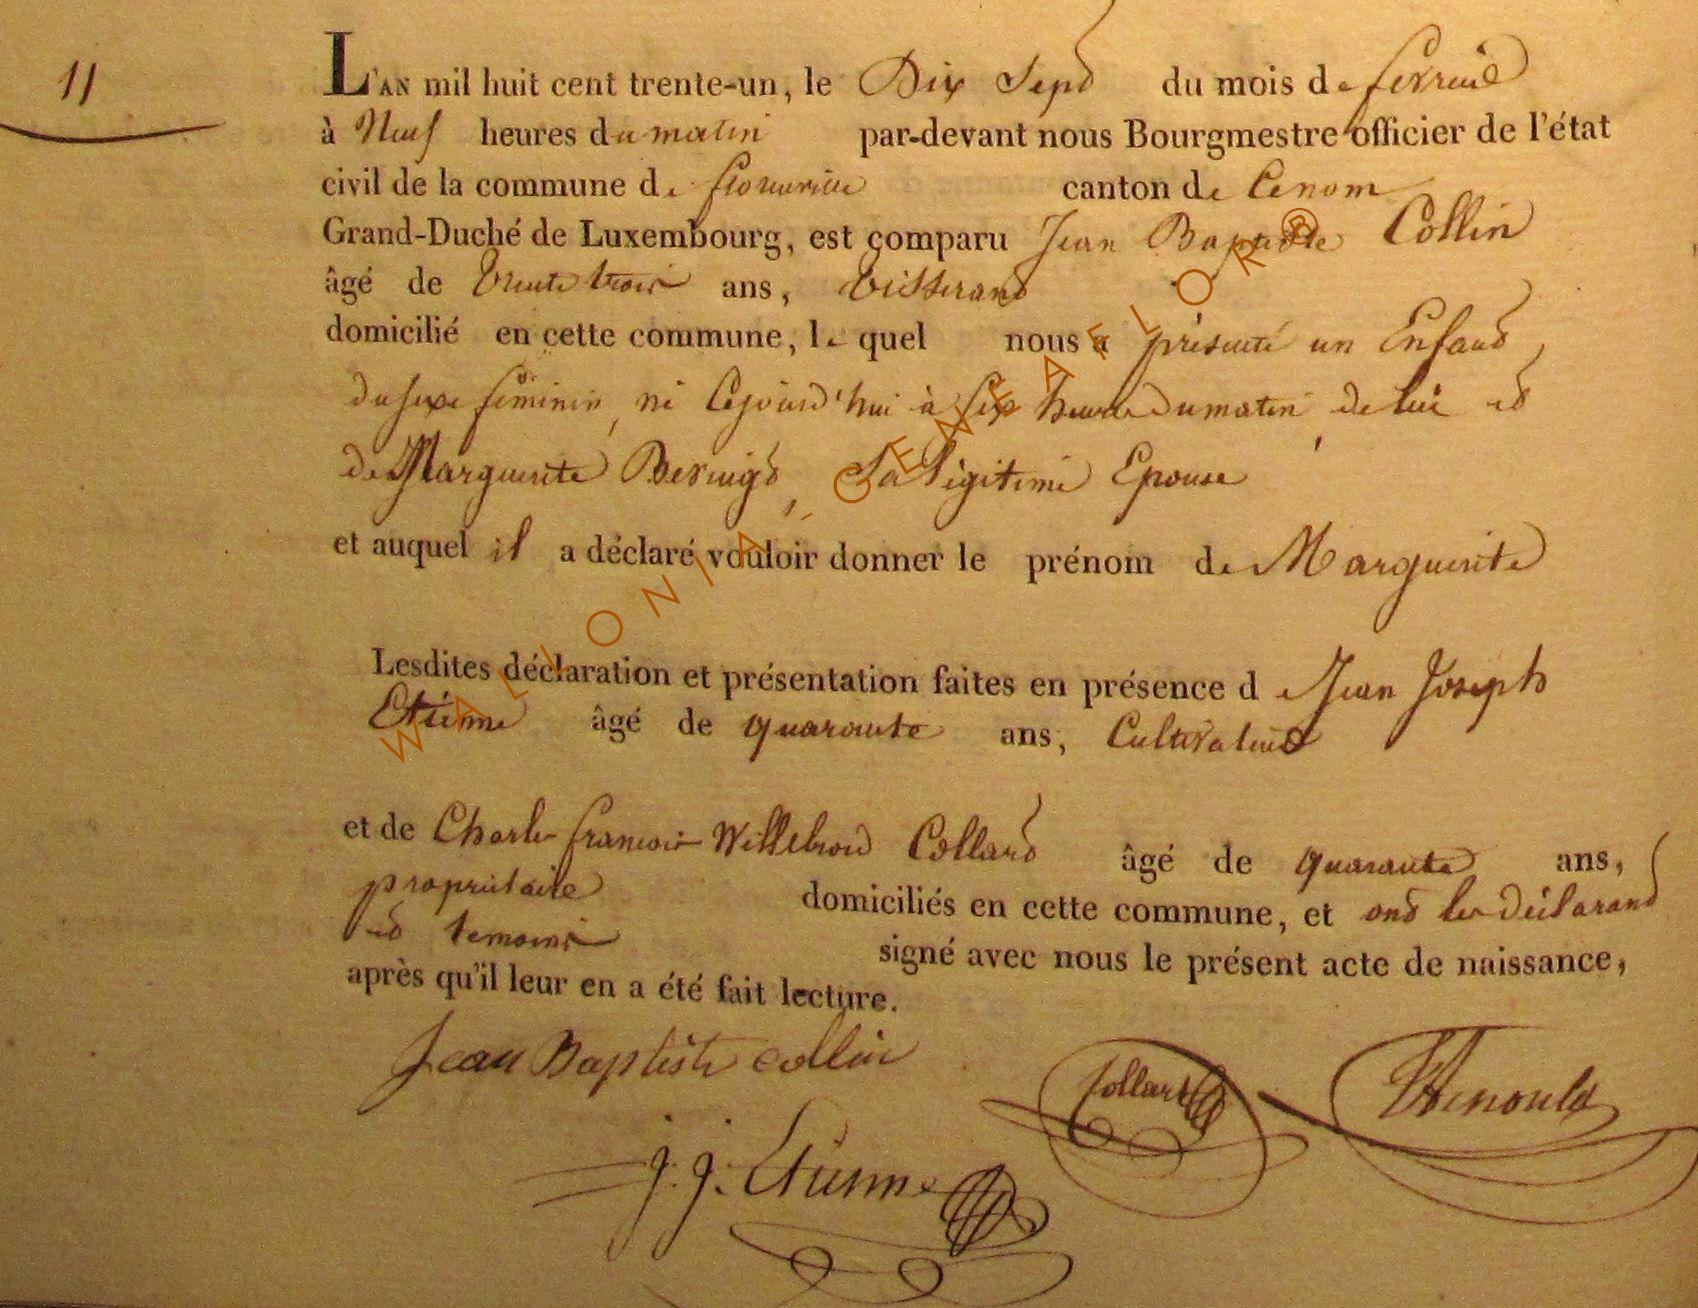 11
L'AN mil huit cent trente-un, le Dix Sept du mois de fevrier
à Neuf heures du matin par-devant nous Bourgmestre officier de l'état
civil de la commune de florenville canton de
Grand-Duché de Luxembourg, est comparu Jean Baptiste Collin
âgé de trente trois ans, tisserand
domicilié en cette commune, le quel nous a présenté un Enfant
du sexe féminin, né Cejourd'hui à six heures du matin de lui et
de Marguerite, Sa légitime Epouse
et auquel il a déclaré vouloir donner le prénom de Marguerite
Lesdites déclaration et présentation faites en présence de Jean Joseph
Etienne âgé de quarante ans, Cultivateur
et de Charles françois Willebrord Collard âgé de quarante ans,
propriétaire domiciliés en cette commune, et ont les déclarant
et temoins signé avec nous le présent acte de naissance,
après qu'il leur en a été fait lecture.
Jean Baptiste collin
Collard
J. J. Etienne
WALLONIA-GENEAFLOR®